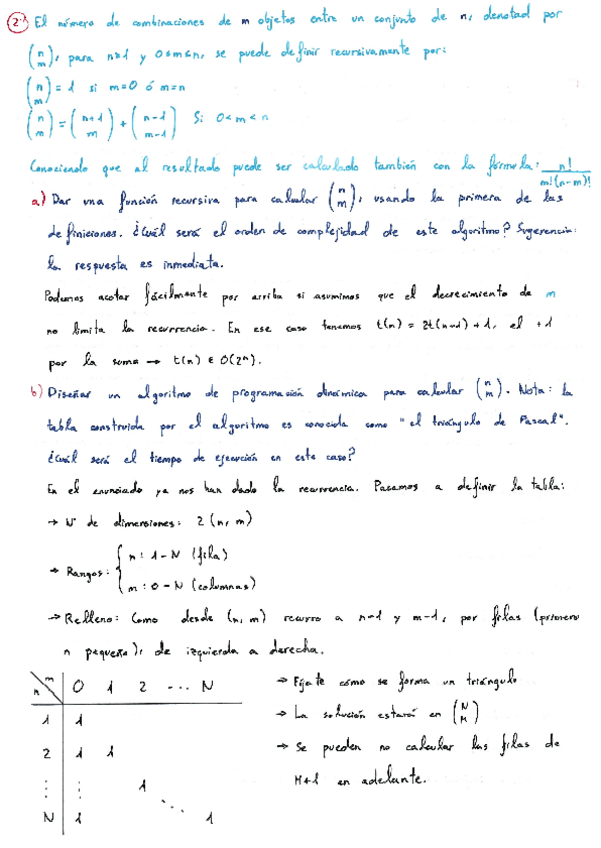 2- El número de combinaciones de m objetos entre un conjunto de n, denotad por
(n m), para n≥1 y 0≤m≤n, se puede definir recursivamente por:
(n m) = 1 si m=0 ó m=n
(n m) = (n+1 m) + (n-1 m-1) Si 0<m<n
Conociendo que al resultado puede ser calculado también con la fórmula: n!/m!(n-m)!
a) Dar una función recursiva para calcular (n m), usando la primera de las
definiciones. ¿Cuál será el orden de complejidad de este algoritmo? Sugerencia:
la respuesta es inmediata.
Podemos acotar fácilmente por arriba si asumimos que el decrecimiento de m
no limita la recurrencia. En ese caso tenemos t(n) = 2t(n-1) + 1, el +1
por la suma → t(n) ∈ O(2ⁿ).
b) Diseñar un algoritmo de programación dinámica para calcular (n m). Nota: la
tabla construida por el algoritmo es conocida como "el triángulo de Pascal".
¿Cuál será el tiempo de ejecución en este caso?
En el enunciado ya nos han dado la recurrencia. Pasamos a definir la tabla:
→ Nº de dimensiones: 2 (n, m)
→ Rangos: { n: 1-N (fila)
m: 0-N (columnas)
→ Relleno: Como desde (n, m) recurro a n-1 y m-1, por filas (primero
n pequeña), de izquierda a derecha.
n m 0 1 2 ... N
1 1
2 1 1
⋮ ⋮ 1 ⋱
N 1 1
→ Fíjate cómo se forma un triángulo
→ La solución estará en (N M)
→ Se pueden no calcular las filas de
M+1 en adelante.